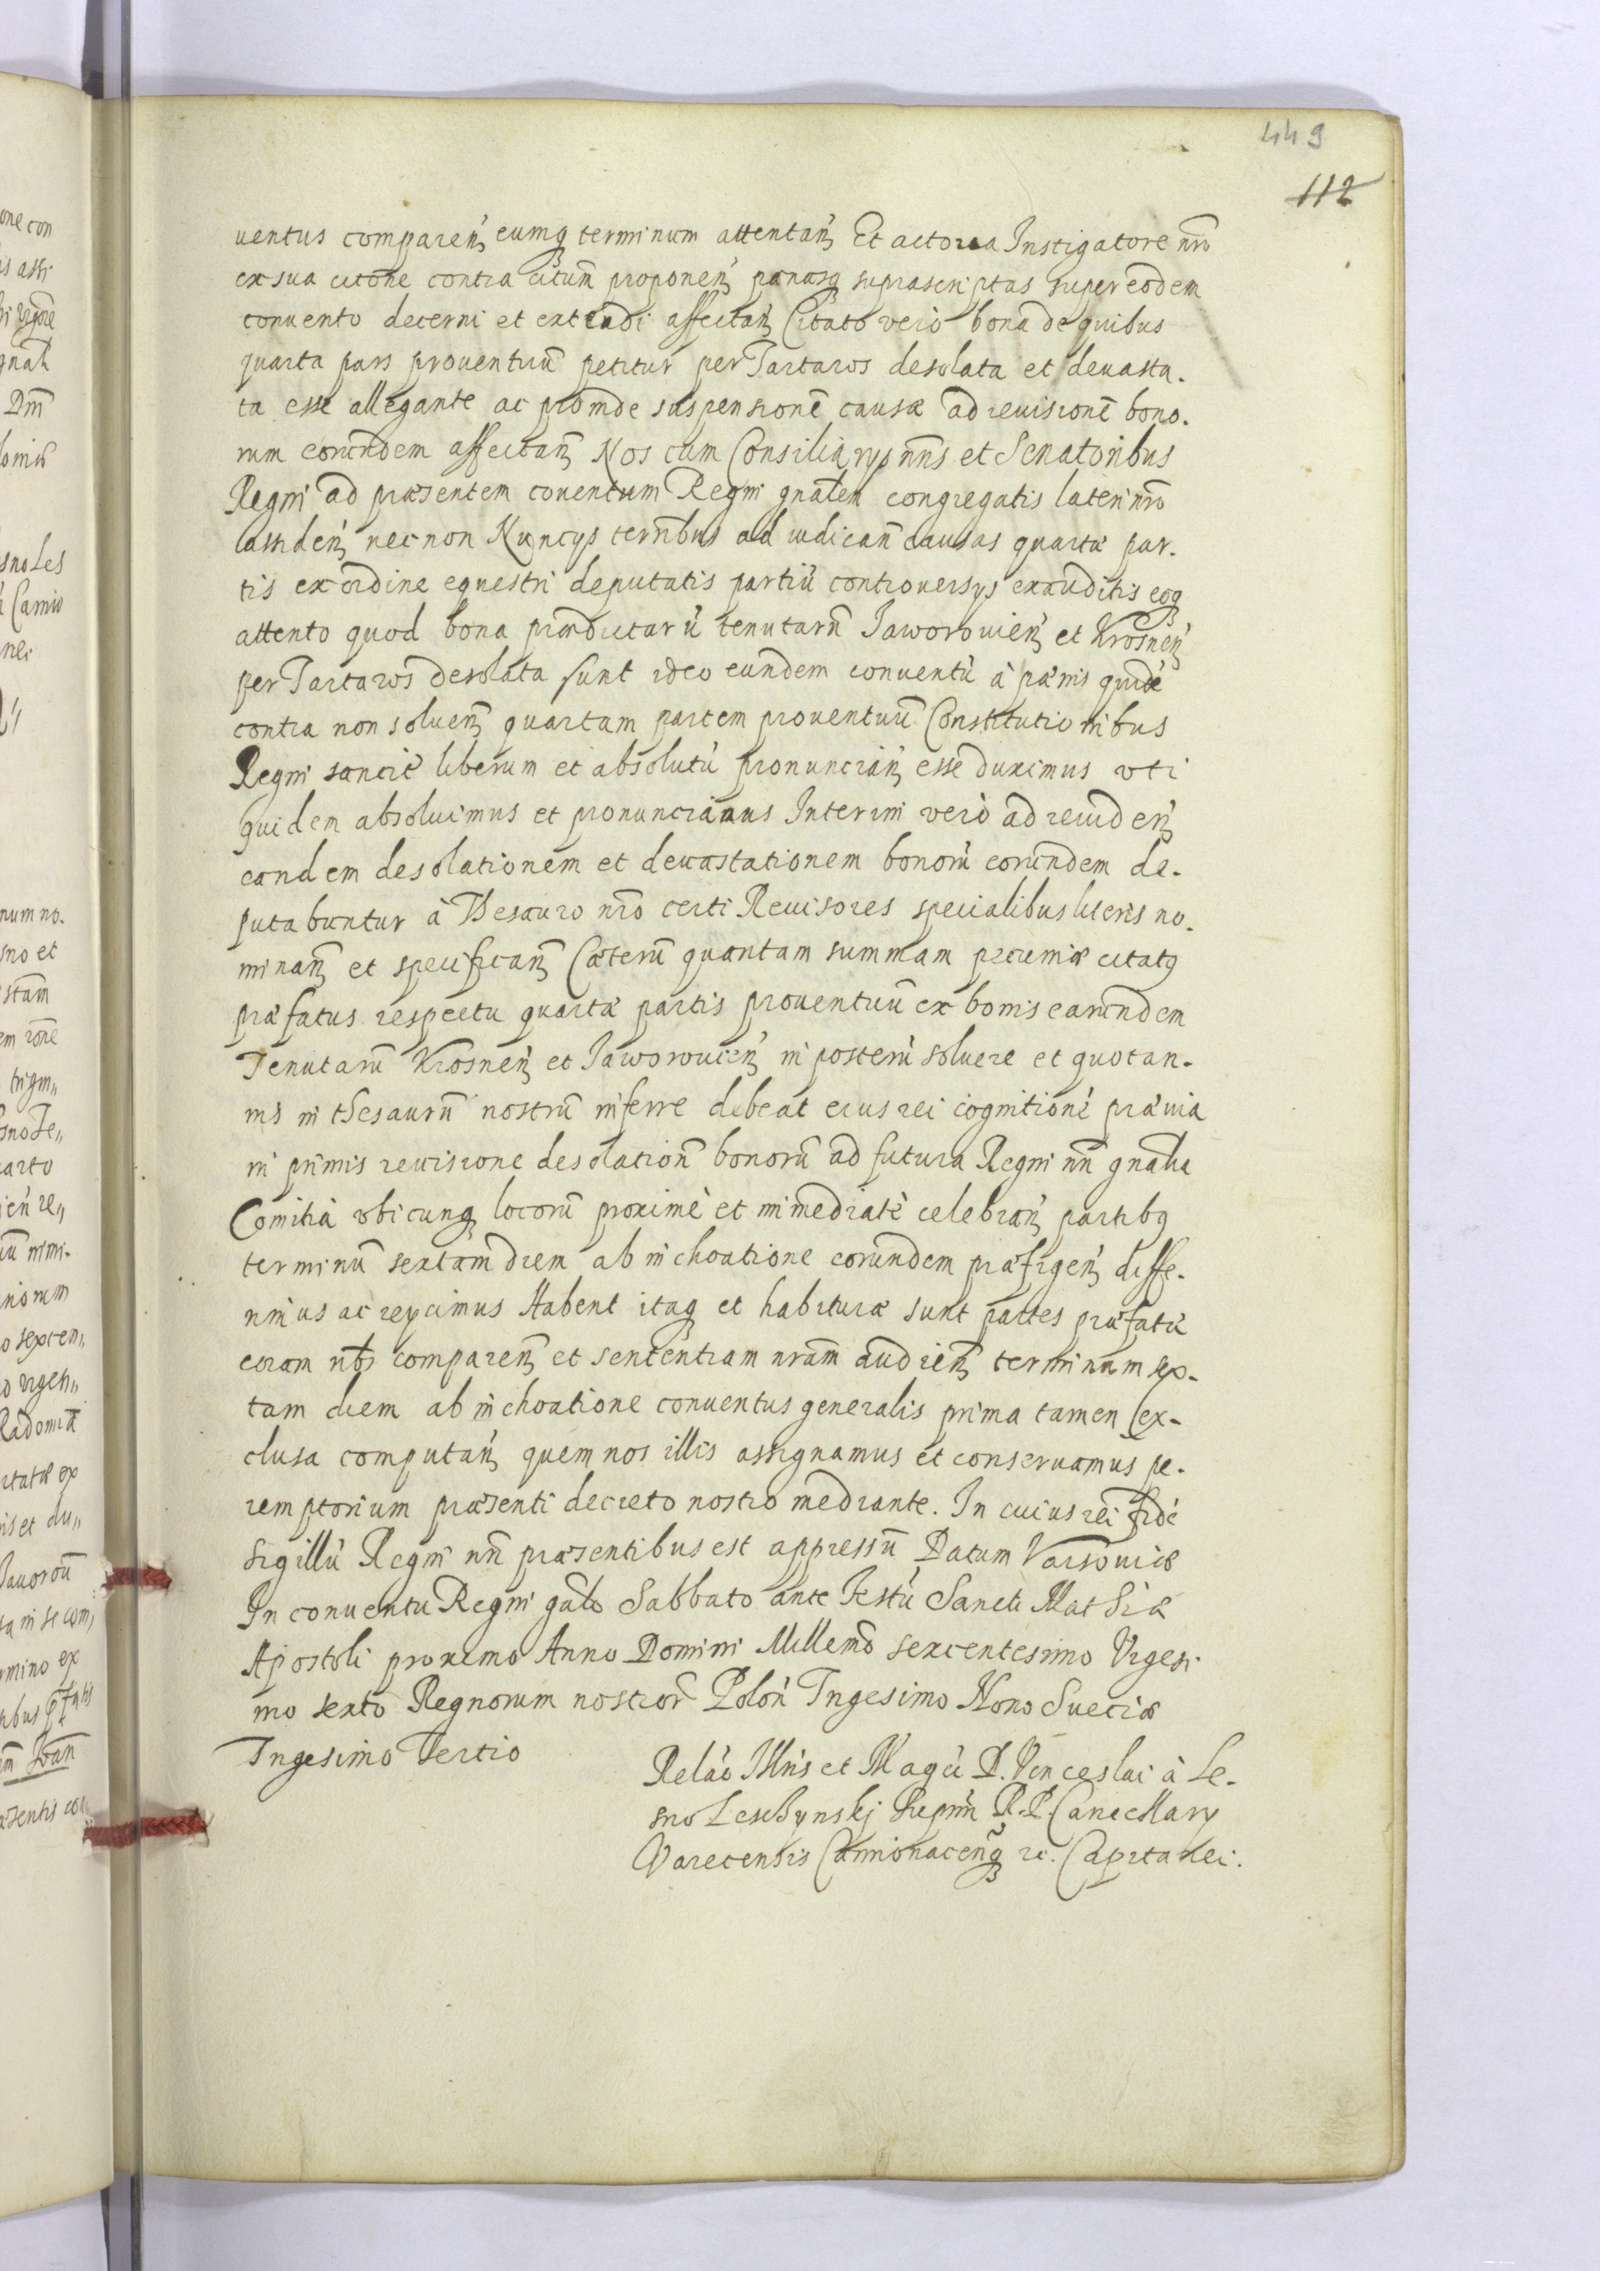 449
112
uentus comparen̄ eumq terminum attentan̄ Et actorea Instigatore nrō
ex sua citōne contra citum̄ proponen̄ pœnasq suprascriptas super eodem
conuento decerni et extendi affectan̄ Citato verò bona de quibus
quarta pars prouentuū petitur per Tartaros desolata et deuasta-
ta esse allegante ac proinde suspensionē causæ ad reuisionē bono-
rum eorundem affectan̄ Nos cum Consiliarys nrīs et Senatoribus
Regni ad præsentem conentum Regni gnālem congregatis lateri nrō
assiden̄ nec non Nuncys terribus ad iudican̄ causas quartæ par-
tis ex ordine equestri deputatis partiū controuersys exauditis eoq
attento quod bona prædictarū tenutarū Jaworouien̄ et Krosnen̄
per Tartaros desolata sunt ideo eundem conuentū à pœnis quidē
contra non soluen̄ quartam partem prouentuū Constitutionibus
Regni sancitè liberum et absolutū pronuncian̄ esse duximus vti
quidem absoluimus et pronunciamus Interim verò ad reuiden̄
eandem desolationem et deuastationem bonorū eorundem de-
putabuntur à Thesauro nrō certi Reuisores specialibus literis no-
minan̄ et specifican̄ Cæterū quantam summam pecuniæ citatq
præfatus respectu quartæ partis prouentuū ex bonis earundem
Tenutarū Krosnen̄ et Jaworouien̄ in posterū soluere et quotan-
nis in thesaurū nostrū inferre debeat eius rei cognitionē præuia
in primis reuisione desolation̄ bonorū ad futura Regni nrī gnālia
Comitia vbicunq locorū proximè et immediatè celebran̄ partibq
terminū sextam diem ab inchoatione eorundem præfigen̄ diffe-
rimus ac reycimus Habent itaq et habituræ sunt partes præfatæ
coram nobīs comparen̄ et sententiam nrām audien̄ terminum sex-
tam diem ab inchoatione conuentus generalis prima tamen ex-
clusa computan̄ quem nos illis assignamus et conseruamus pe-
remptorium præsenti decreto nostro mediante. In cuius rei fidē
sigillū Regni nrī præsentibus est appressū Datum Varsouiæ
In conuentu Regni gnāli Sabbato ante Festū Sancti Mathiæ
Apostoli proximo Anno Domini Millemō sexcentesimo Vigesi-
mo sexto Regnorum nostror̄ Polon̄ Trigesimo Nono Sueciæ
Trigesimo Tertio
Relāo Illrīs et Magcī D. Venceslai à Le-
sno Lesczynskj Supmī R. P. Cancellary
Varecensis Camionacen̄q etc. Capitanei.